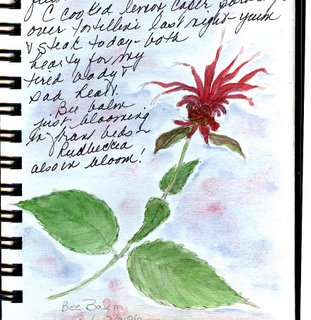 C cooked lemon caper
over tortellini last night - yum
& steak today - both
hearty for my
tired body &
sad heart.
Bee balm
just blooming
in fran beds -
Rudbeckia
also in bloom!
Bee Balm